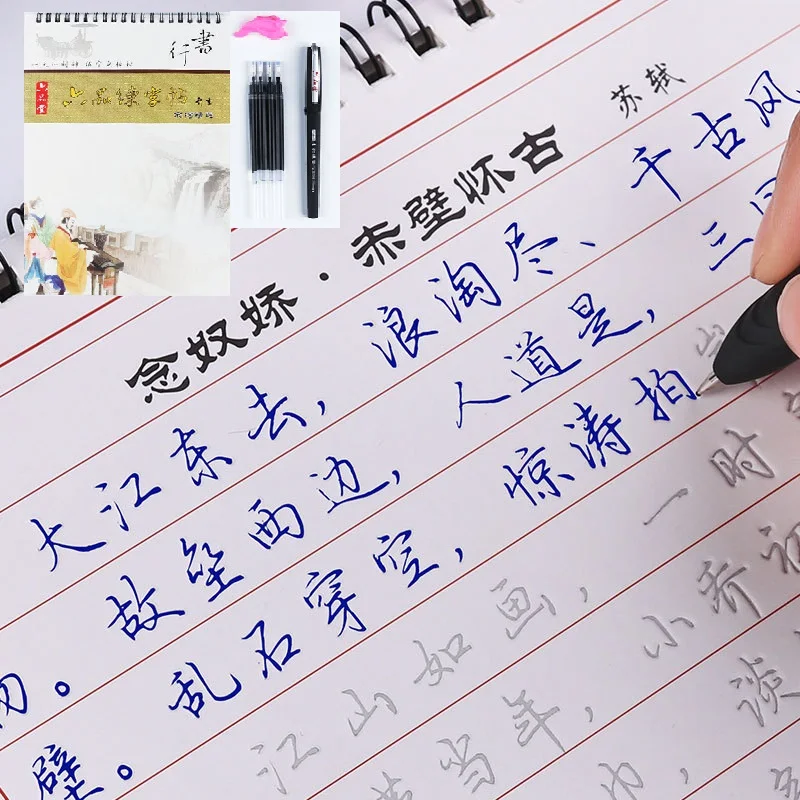 行書
六品練字帖
苏轼
念奴娇·赤壁怀古
大江东去，浪淘尽、千古风
。故垒西边，人道是，三国
壁。乱石穿空，惊涛拍
江山如画，一时
当年，小乔初
巾，谈